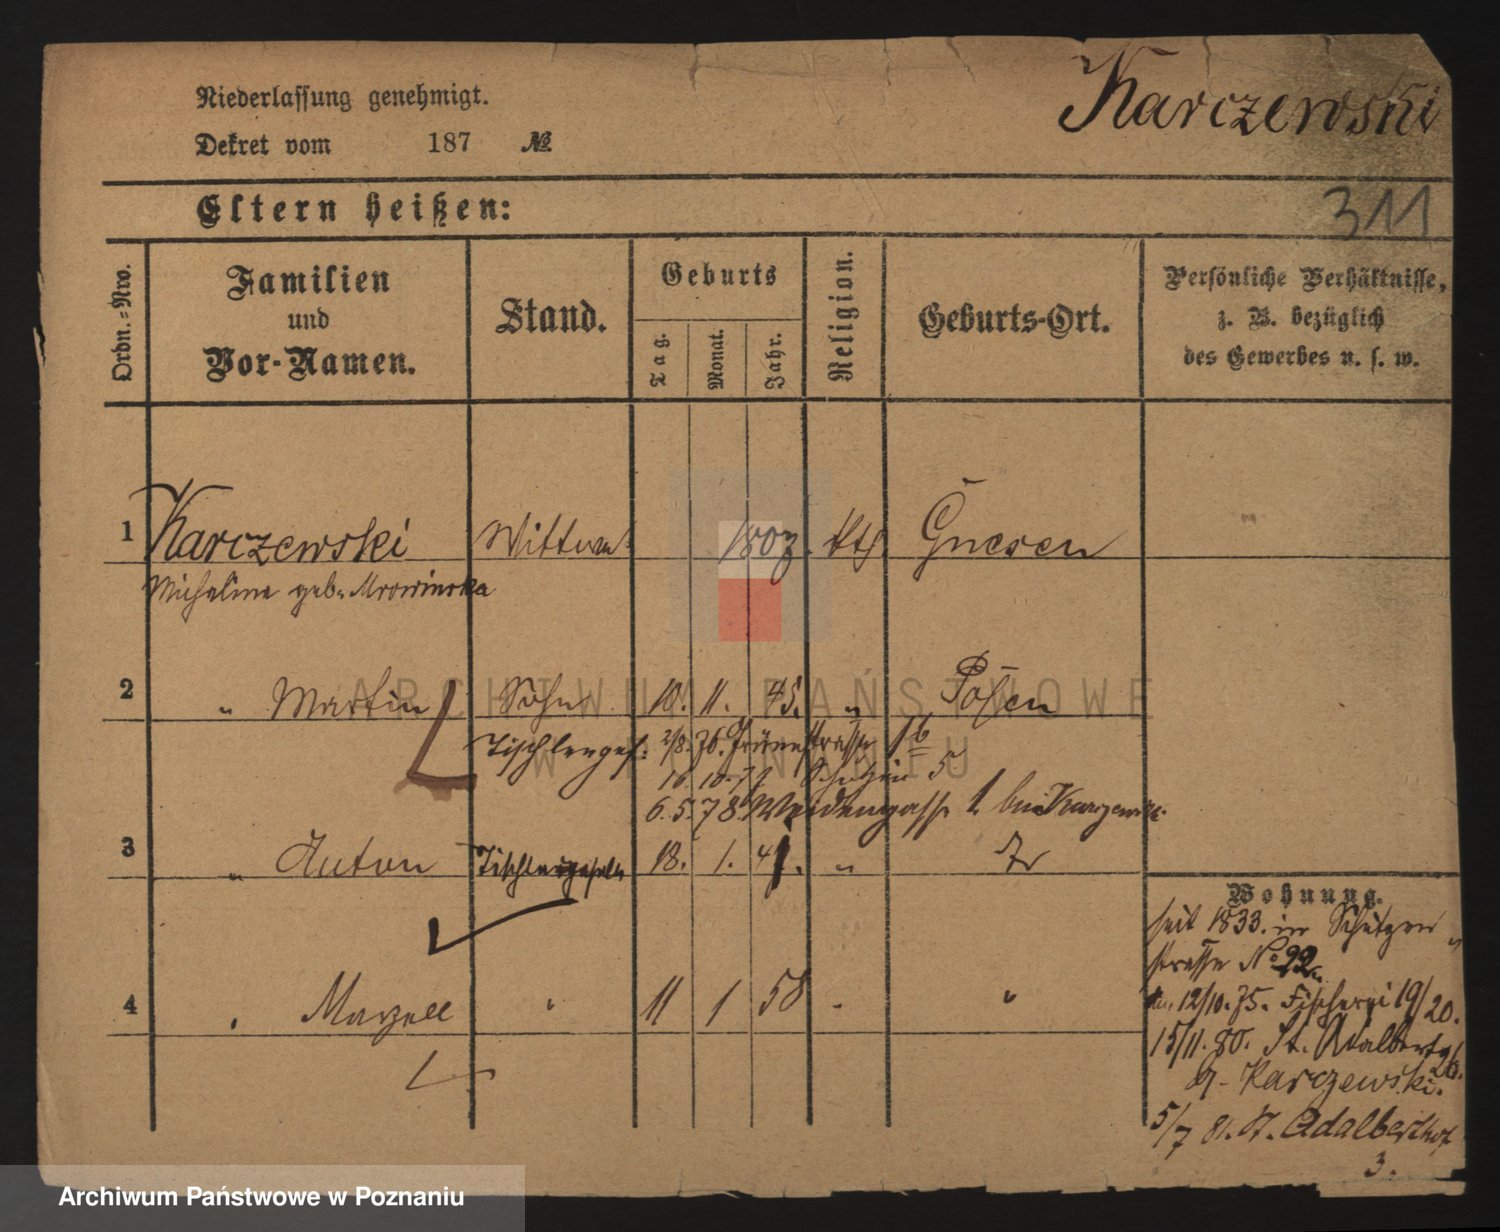 Karczewski
Niederlassung genehmigt.
Dekret vom 187 №
311
Eltern heißen:
Ordn.=Nro.
Familien
und
Vor-Namen.
Stand.
Geburts
Tag.
Monat.
Jahr.
Religion.
Geburts-Ort.
Persönliche Verhältnisse,
z. B. bezüglich
des Gewerbes u. s. w.
1 Karczewski Wittwe 180 kth Gnesen
Micheline geb. Mrowinska
2 " Martin Sohn 10. 11. 45. " Posen
Tischlerges: 2/8. 76. Grünestrasse
16. 10. 77 Schützen 5
6. 5. 78. Weidengasse 1. bei Karczewski
3 " Anton Tischlergeselle 18. 1. " 
Wohnung.
seit 1833. in Schützen
strasse No 22
12/10. 75. Fischerei 19/20.
4 " Marzell " 11 1 58 " "
15/11. 80. St. Adalbert 26.
b. Karczewski.
5/7 81. St. Adalberthof
3.
ARCHIWUM PAŃSTWOWE
W POZNANIU
Archiwum Państwowe w Poznaniu